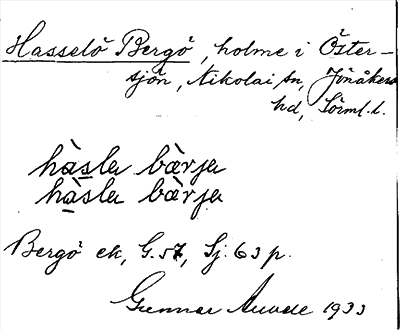 Hasselö Bergö, holme i Öster-
sjön, Nikolai sn, Jönåkers
hd, Sörml. l.
hàsla bàrja
hàsla bàrja
Bergö ek, G. 57, Sj. 63 p.
Gunnar 1933